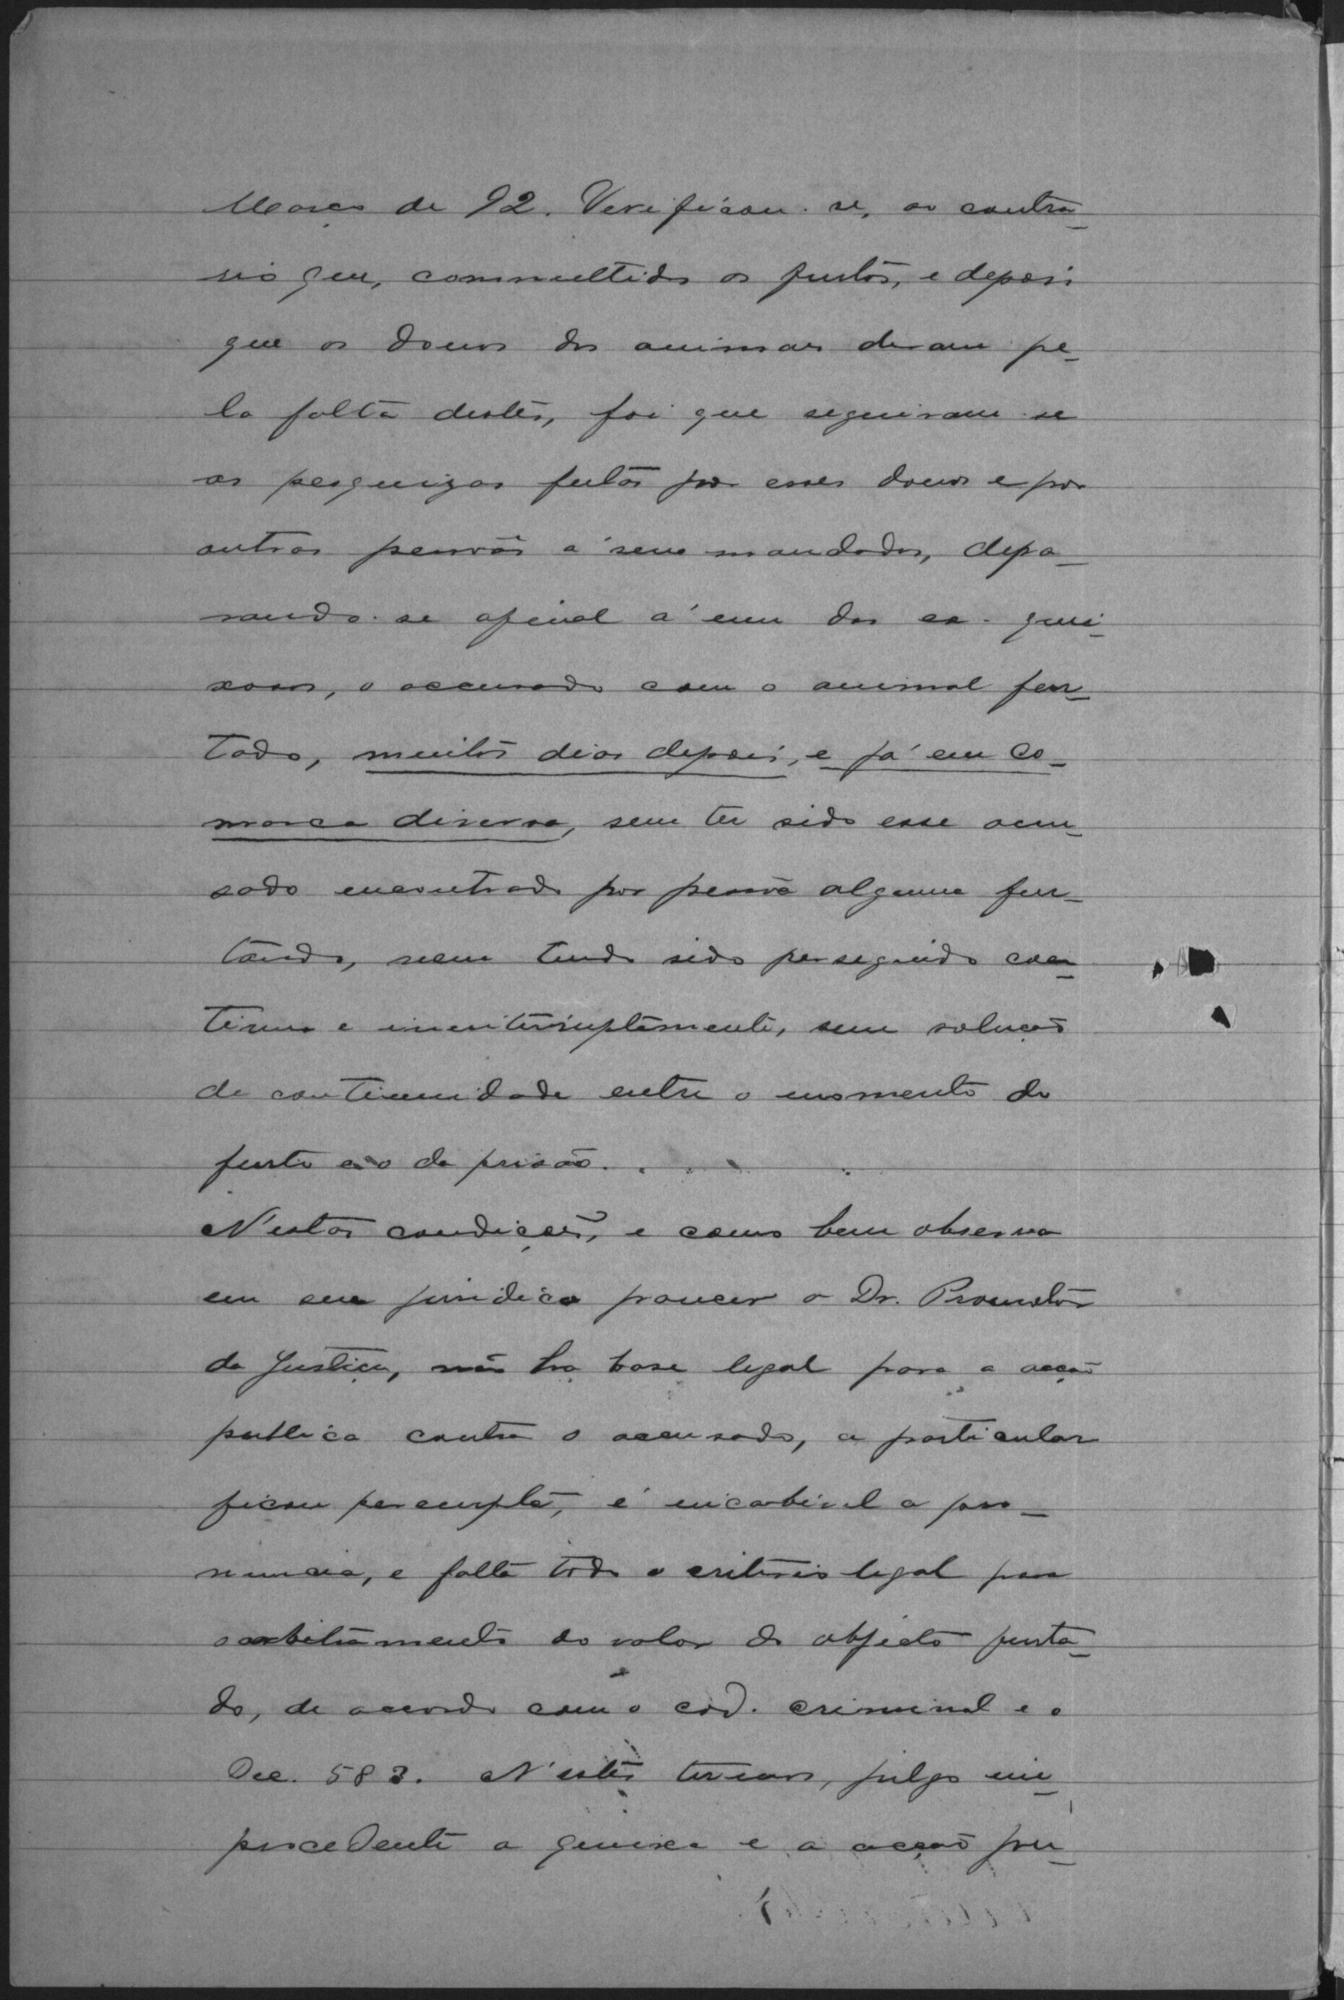 Março de 92. Verificou-se, ao contra-
rio que, commettidos os furtos, e depois
que os donos dos animaes deram pe-
la falta destes, foi que seguiram-se
as pesquizas feitas por esses donos e por
outras pessôas a' seus mandados, depa-
rando-se afinal a' um dos ex-quei-
xosos, o accusado com o animal fur-
tado, muitos dias depois, e já em co-
marca diversa, sem ter sido esse accu-
sado encontrado por pessôa alguma fur-
tando, nem tendo sido perseguido con-
tinua e ininterruptamente, sem solução
de continuidade entre o momento do
furto e o da prisão.
N'estas condições, e como bem observa
em seu juridico parecer o Dr. Promotor
da Justiça, não ha base legal para a acção
publica contra o accusado, a particular
ficou perempta, é incabivel a pro-
nuncia, e falta todo o criterio legal para
o arbitramento do valor do objecto furta-
do, de accordo com o cod. criminal e o
Dec. 583. N'estes termos, julgo im-
procedente a queixa e a acção pu-